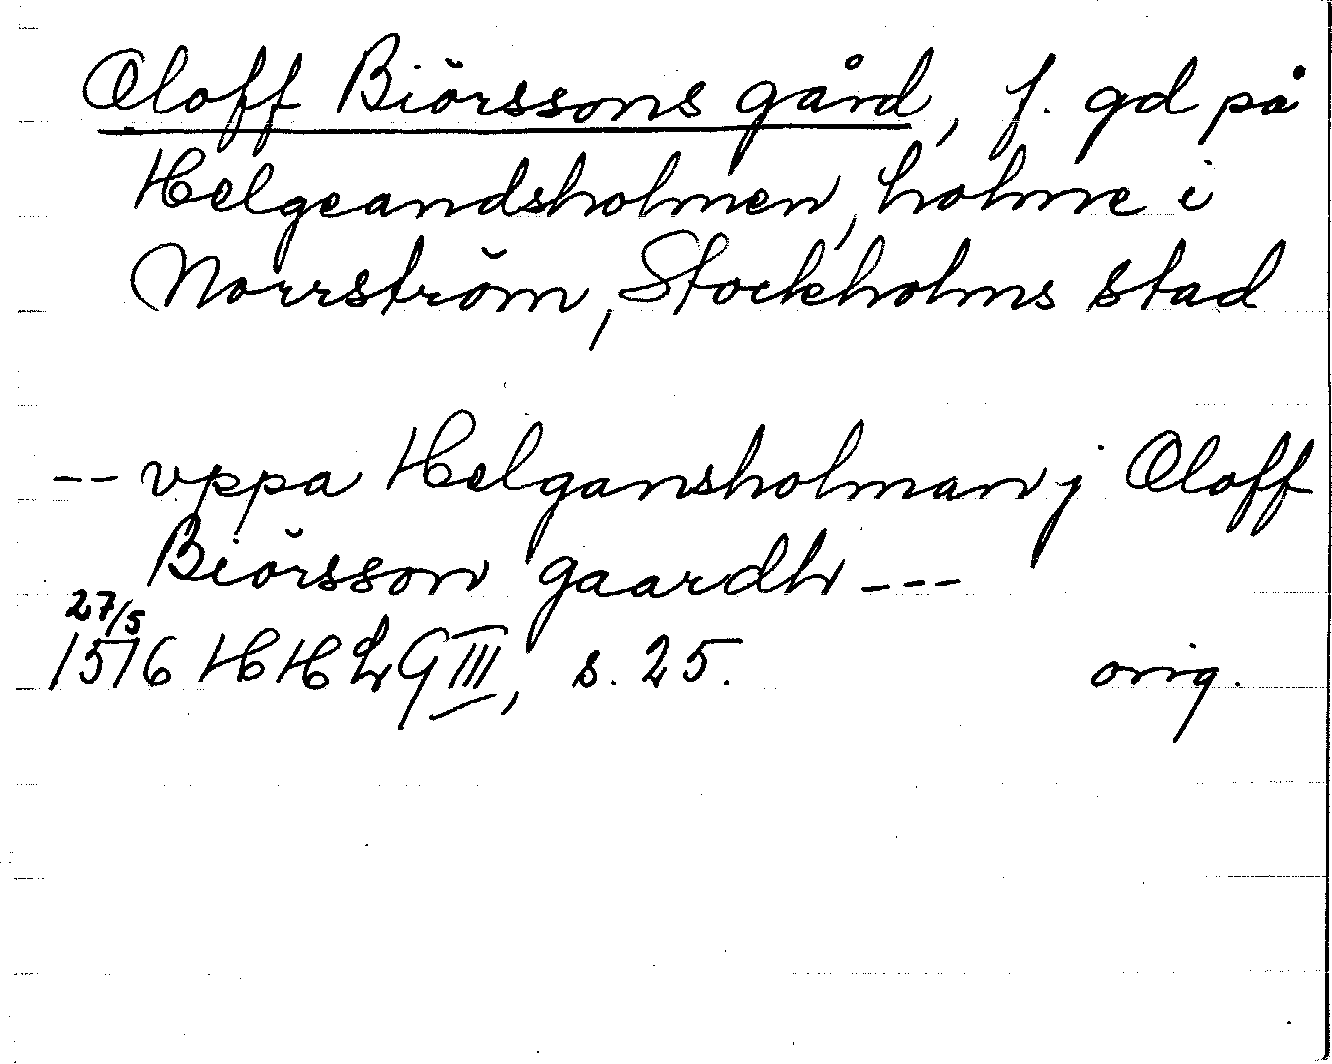 Oloff Biörssons gård, f. gd på
Helgeandsholmen, holme i
Norrström, Stockholms stad
-- vppa Helgansholman j Oloff
Biörsson gaardh ---
27/5
1516 HHLG III, s. 25. orig.